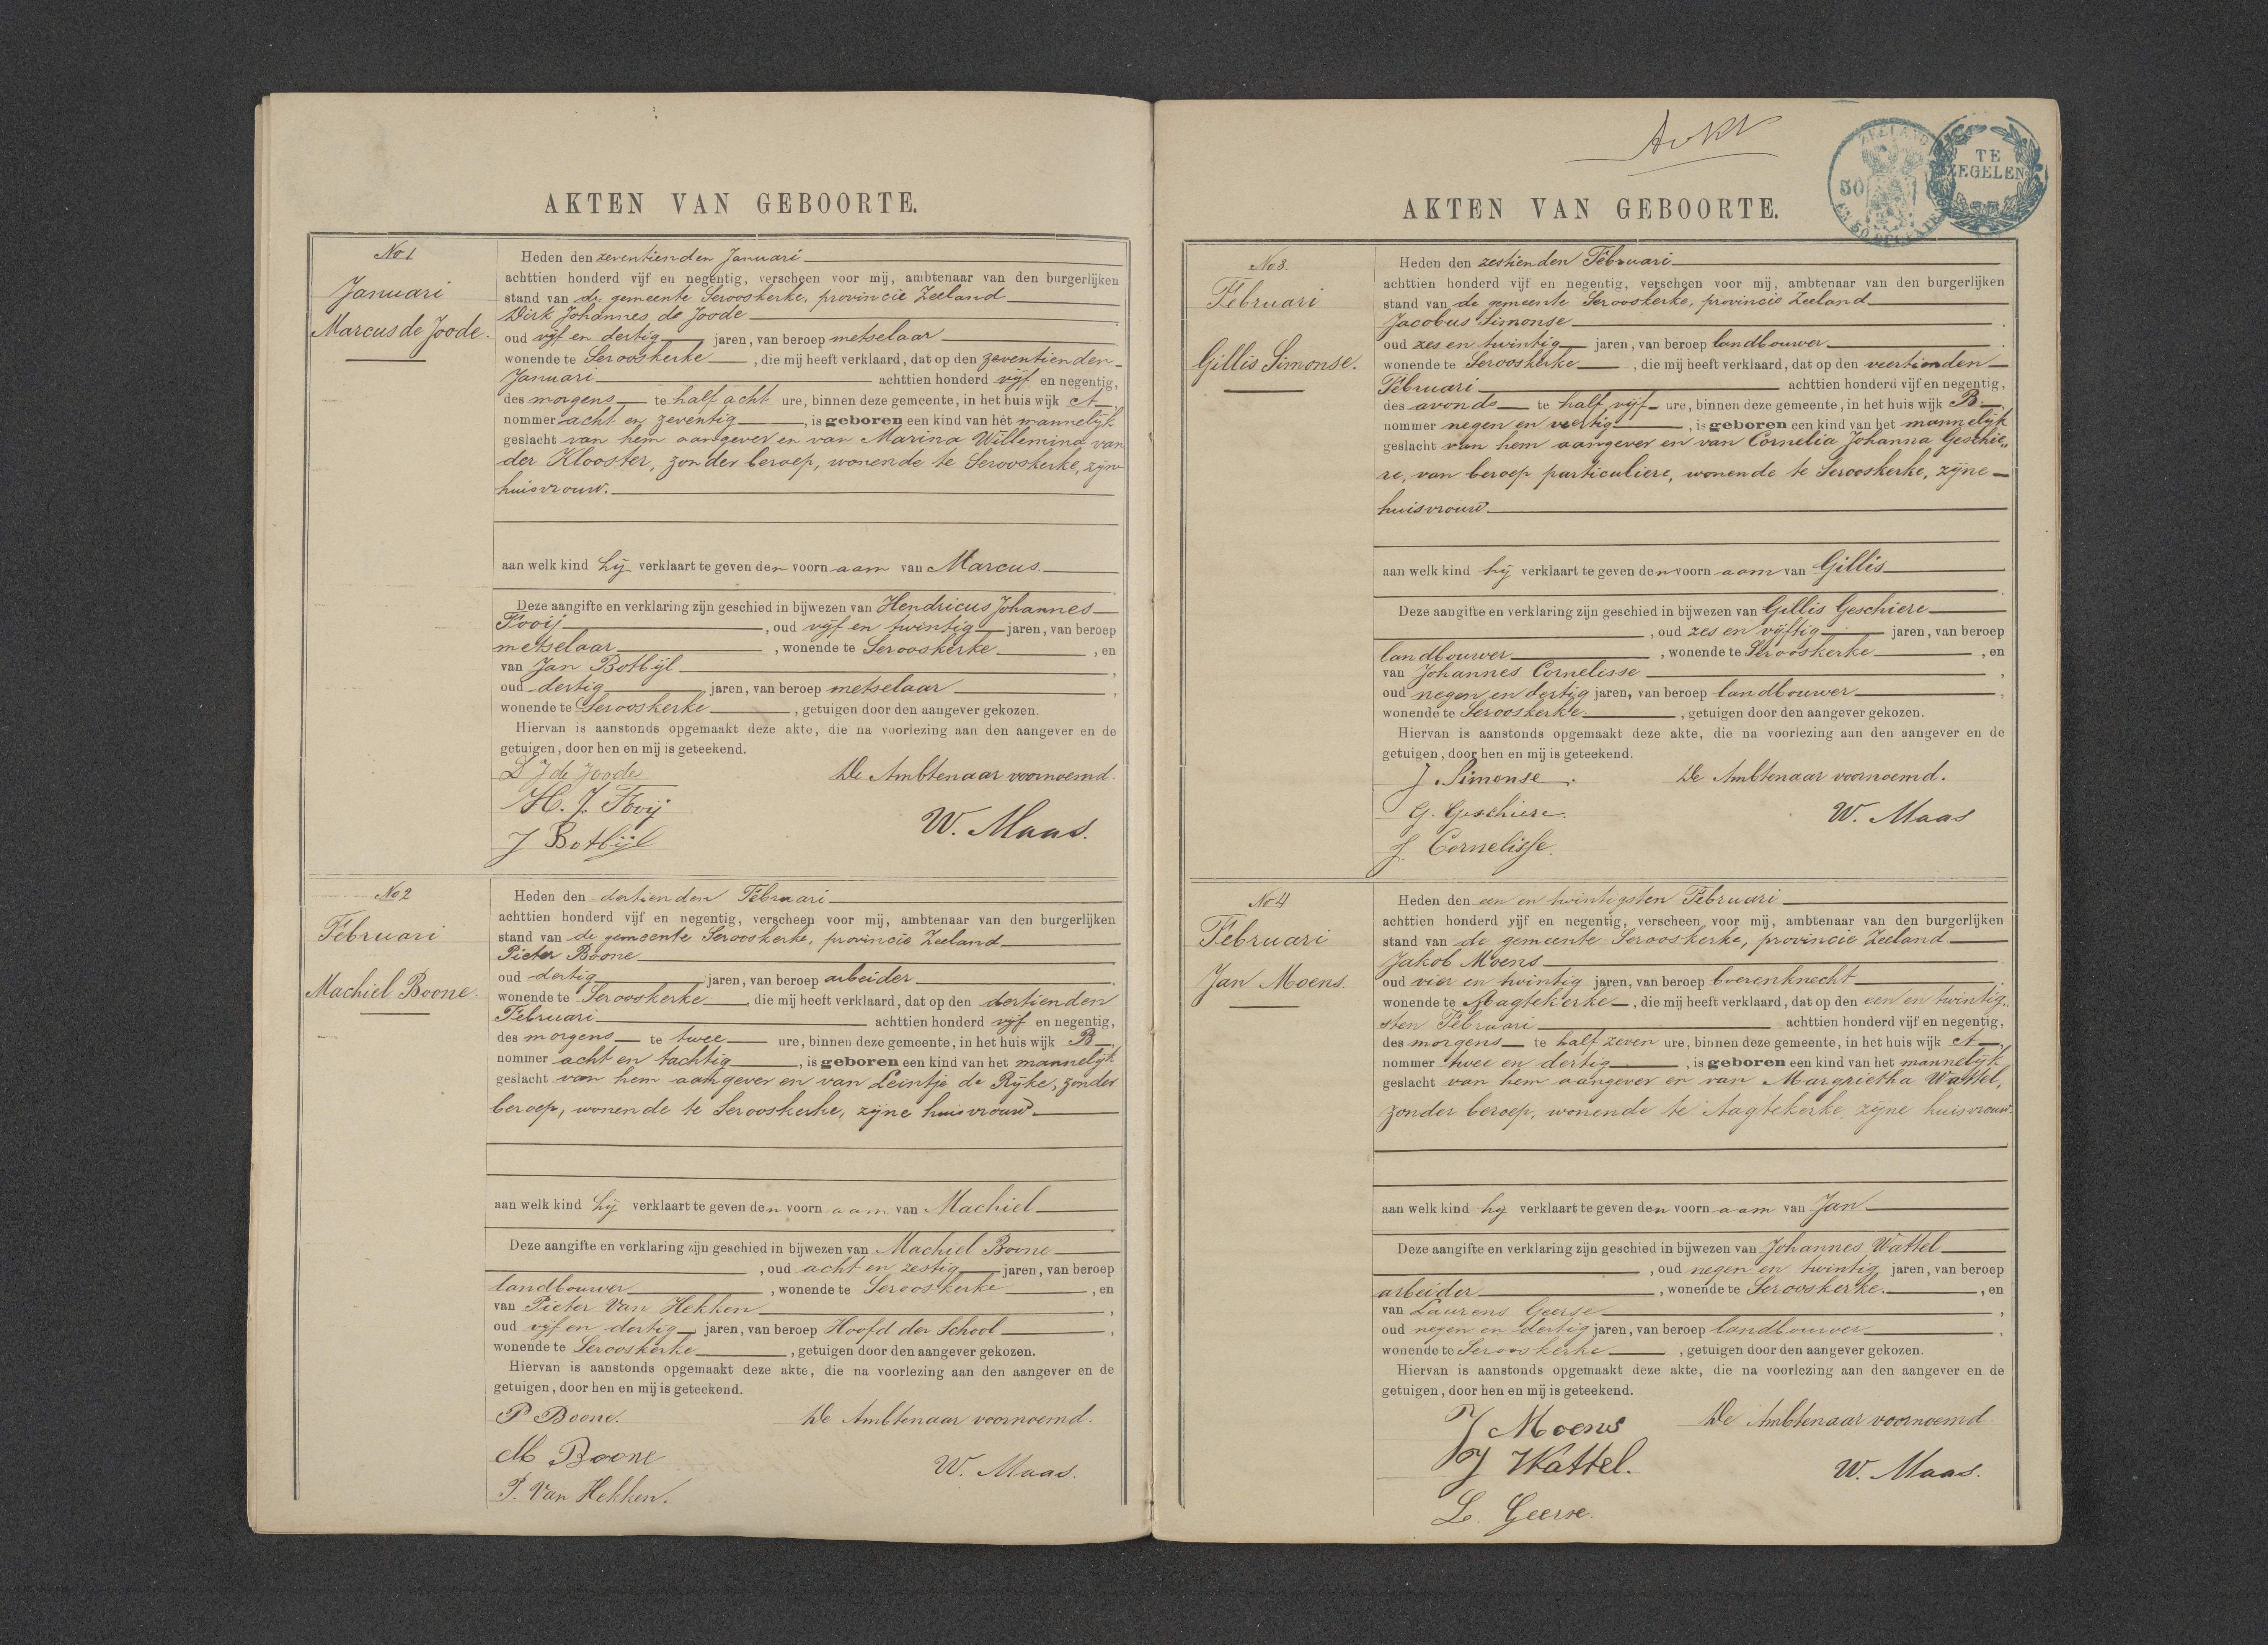 AKTEN VAN GEBOORTE.
No 1
Januari
Marcus de Joode.
Heden den zeventienden Januari
achttien honderd vijf en negentig, verscheen voor mij, ambtenaar van den burgerlijken
stand van de gemeente Serooskerke, provincie Zeeland
Dirk Johannes de Joode
oud vijf en dertig jaren, van beroep metselaar
wonende te Serooskerke, die mij heeft verklaard, dat op den zeventienden
Januari achttien honderd vijf en negentig,
des morgens te half acht ure, binnen deze gemeente, in het huis wijk A,
nommer acht en zeventig, is geboren een kind van het mannelijk
geslacht van hem aangever en van Marina Willemina van
der Klooster, zonder beroep, wonende te Serooskerke, zijne
huisvrouw.
aan welk kind hij verklaart te geven den voornaam van Marcus.
Deze aangifte en verklaring zijn geschied in bijwezen van Hendricus Johannes
Fooij, oud vijf en twintig jaren, van beroep
metselaar, wonende te Serooskerke, en
van Jan Botbijl,
oud dertig jaren, van beroep metselaar,
wonende te Serooskerke, getuigen door den aangever gekozen.
Hiervan is aanstonds opgemaakt deze akte, die na voorlezing aan den aangever en de
getuigen, door hen en mij is geteekend.
D J de Joode
De Ambtenaar voornoemd.
H. J. Fooij
W. Maas.
J Botbijl
No 2
Februari
Machiel Boone
Heden den dertienden Februari
achttien honderd vijf en negentig, verscheen voor mij, ambtenaar van den burgerlijken
stand van de gemeente Serooskerke, provincie Zeeland
Pieter Boone
oud dertig jaren, van beroep arbeider.
wonende te Serooskerke, die mij heeft verklaard, dat op den dertienden
Februari achttien honderd vijf en negentig,
des morgens te twee ure, binnen deze gemeente, in het huis wijk B,
nommer acht en tachtig, is geboren een kind van het mannelijk
geslacht van hem aangever en van Leintje de Rijke, zonder
beroep, wonende te Serooskerke, zijne huisvrouw
aan welk kind hij verklaart te geven den voornaam van Machiel
Deze aangifte en verklaring zijn geschied in bijwezen van Machiel Boone
, oud acht en zestig jaren, van beroep
landbouwer, wonende te Serooskerke, en
van Pieter Van Hekken,
oud vijf en dertig jaren, van beroep Hoofd der School,
wonende te Serooskerke, getuigen door den aangever gekozen.
Hiervan is aanstonds opgemaakt deze akte, die na voorlezing aan den aangever en de
getuigen, door hen en mij is geteekend.
P Boone.
De Ambtenaar voornoemd.
M Boone
W. Maas.
P. Van Hekken.
ZEELAND
50
TE
ZEGELEN
AKTEN VAN GEBOORTE.
No 3.
Februari
Gillis Simonse.
Heden den zestienden Februari
achttien honderd vijf en negentig, verscheen voor mij, ambtenaar van den burgerlijken
stand van de gemeente Serooskerke, provincie Zeeland
Jacobus Simonse.
oud zes en twintig jaren, van beroep landbouwer.
wonende te Serooskerke, die mij heeft verklaard, dat op den veertienden
Februari achttien honderd vijf en negentig,
des avonds te half vijf ure, binnen deze gemeente, in het huis wijk B,
nommer negen en veertig, is geboren een kind van het mannelijk
geslacht van hem aangever en van Cornelia Johanna Geschie„
re, van beroep particuliere, wonende te Serooskerke, zijne
huisvrouw
aan welk kind hij verklaart te geven den voornaam van Gillis
Deze aangifte en verklaring zijn geschied in bijwezen van Gillis Geschiere
, oud zes en vijftig jaren, van beroep
landbouwer, wonende te Serooskerke, en
van Johannes Cornelisse,
oud negen en dertig jaren, van beroep landbouwer,
wonende te Serooskerke, getuigen door den aangever gekozen.
Hiervan is aanstonds opgemaakt deze akte, die na voorlezing aan den aangever en de
getuigen, door hen en mij is geteekend.
J. Simonse.
De Ambtenaar voornoemd.
G. Geschiere.
W. Maas
J. Cornelisse.
No 4
Februari
Jan Moens.
Heden den een en twintigsten Februari
achttien honderd vijf en negentig, verscheen voor mij, ambtenaar van den burgerlijken
stand van de gemeente Serooskerke, provincie Zeeland
Jakob Moens
oud vier en twintig jaren, van beroep boerenknecht.
wonende te Aagtekerke, die mij heeft verklaard, dat op den een en twintig„
sten Februari achttien honderd vijf en negentig,
des morgens te half zeven ure, binnen deze gemeente, in het huis wijk A,
nommer twee en dertig, is geboren een kind van het mannelijk
geslacht van hem aangever en van Margrietha Wattel,
zonder beroep, wonende te Aagtekerke, zijne huisvrouw.
aan welk kind hij verklaart te geven den voornaam van Jan
Deze aangifte en verklaring zijn geschied in bijwezen van Johannes Wattel
, oud negen en twintig jaren, van beroep
arbeider, wonende te Serooskerke, en
van Laurens Geerse,
oud negen en dertig jaren, van beroep landbouwer,
wonende te Serooskerke, getuigen door den aangever gekozen.
Hiervan is aanstonds opgemaakt deze akte, die na voorlezing aan den aangever en de
getuigen, door hen en mij is geteekend.
J Moens
De Ambtenaar voornoemd
J Wattel.
W. Maas.
L. Geerse.